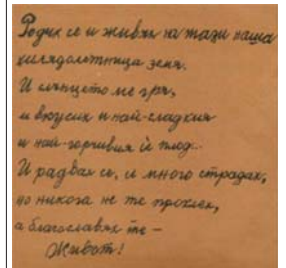 Родих се и живях на тази наша
хилядолетница земя.
И слънцето ме гря,
и вкусих и най-сладкия
и най-горчивия ѝ плод.
И радвах се, и много страдах,
но никога не те проклех,
а благославях те –
Живот!